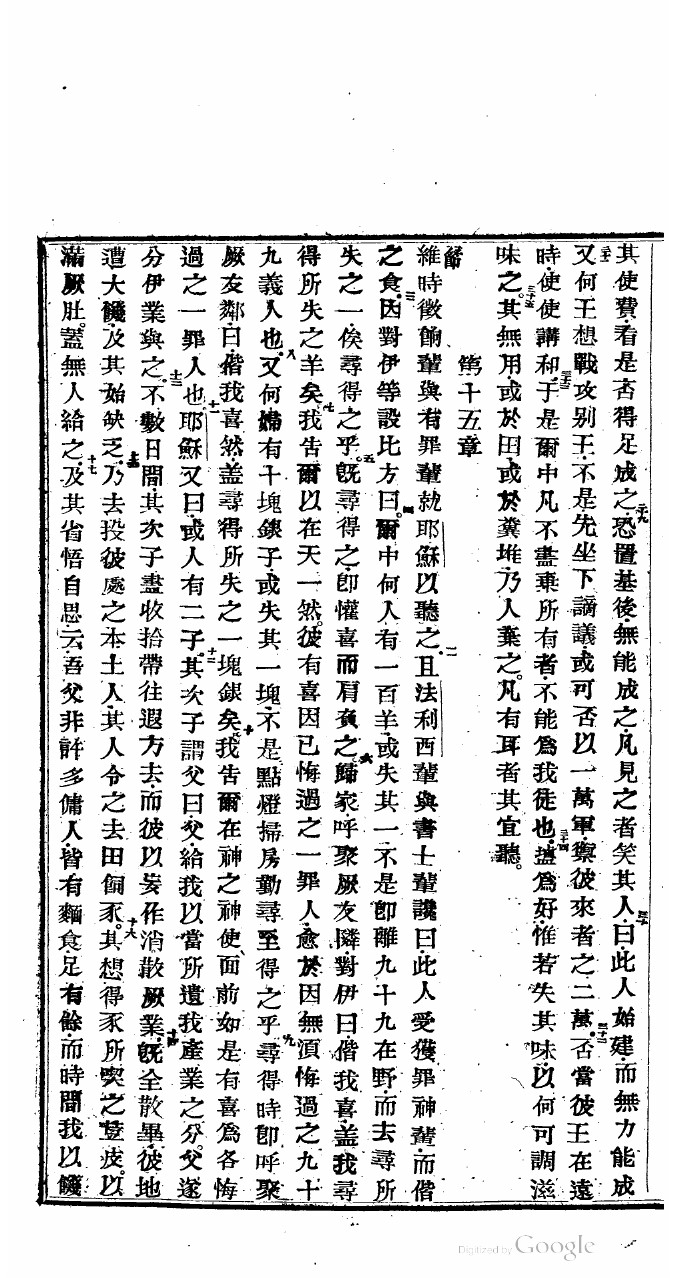 其使費看是否得足成之恐置基後無能成之凡見之者笑其人曰此人始建而無力能成
又何王想戰攻别王不是先坐下謫議或可否以一萬軍禦彼來者之二萬否當彼王在遠
時使使講和于是爾中凡不盡棄所有者不能爲我徒也盬爲好惟若失其味以何可調滋
味之其無用或於田或於糞堆乃人棄之凡有耳者其宜聽
第十五章
維時徵餉輩與有罪輩就耶穌以聽之且法利西輩與書士輩讒曰此人受獲罪神輩而偕
之食因對伊等設比方曰爾中何人有一百羊或失其一不是卽離九十九在野而去尋所
失之一俟尋得之乎旣尋得之卽懽喜而肩負之歸家呼聚厥友隣對伊曰偕我喜盖我尋
得所失之羊矣我告爾以在天一然彼有喜因已悔過之一罪人愈於因無湏悔過之九十
九義人也又何婦有十塊錢子或失其一塊不是點燈掃房勤尋至得之乎尋得時卽呼聚
厥友鄰曰偕我喜然盖尋得所失之一塊錢矣我告爾在神之神使面前如是有喜爲各悔
過之一罪人也耶穌又曰或人有二子其次子謂父曰父給我以當所遺我產業之分父遂
分伊業與之不數日間其次子盡收拾帶往遐方去而彼以妄作消散厥業旣全散畢彼地
遭大饑及其始缺乏乃去投彼處之本土人其人令之去田飼豕其想得豕所喫之荳皮以
滿厥肚蓋無人給之及其省悟自思云吾父非許多傭人皆有麵食足有餘而時間我以饑
Digitized by Google